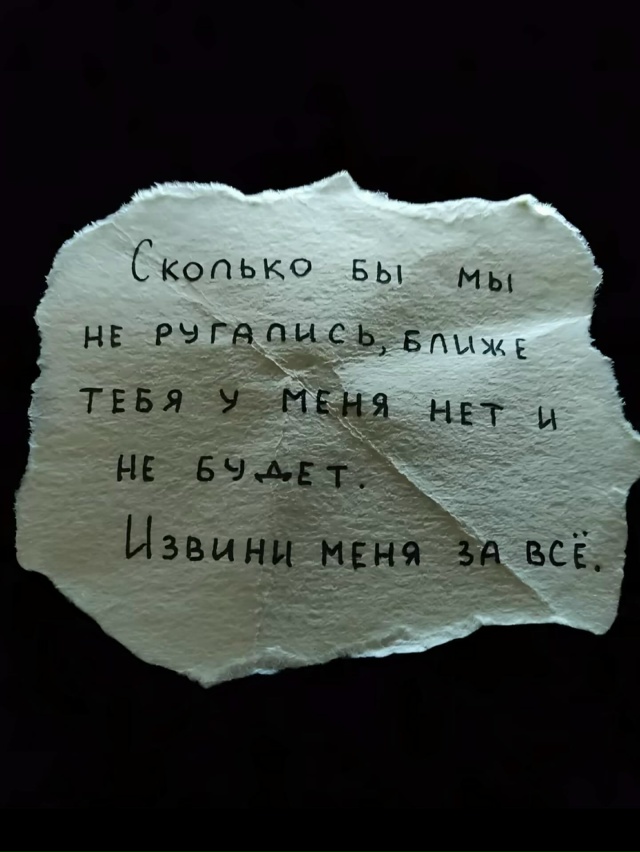 Сколько бы мы
не ругались, ближе
тебя у меня нет и
не будет.
Извини меня за всё.